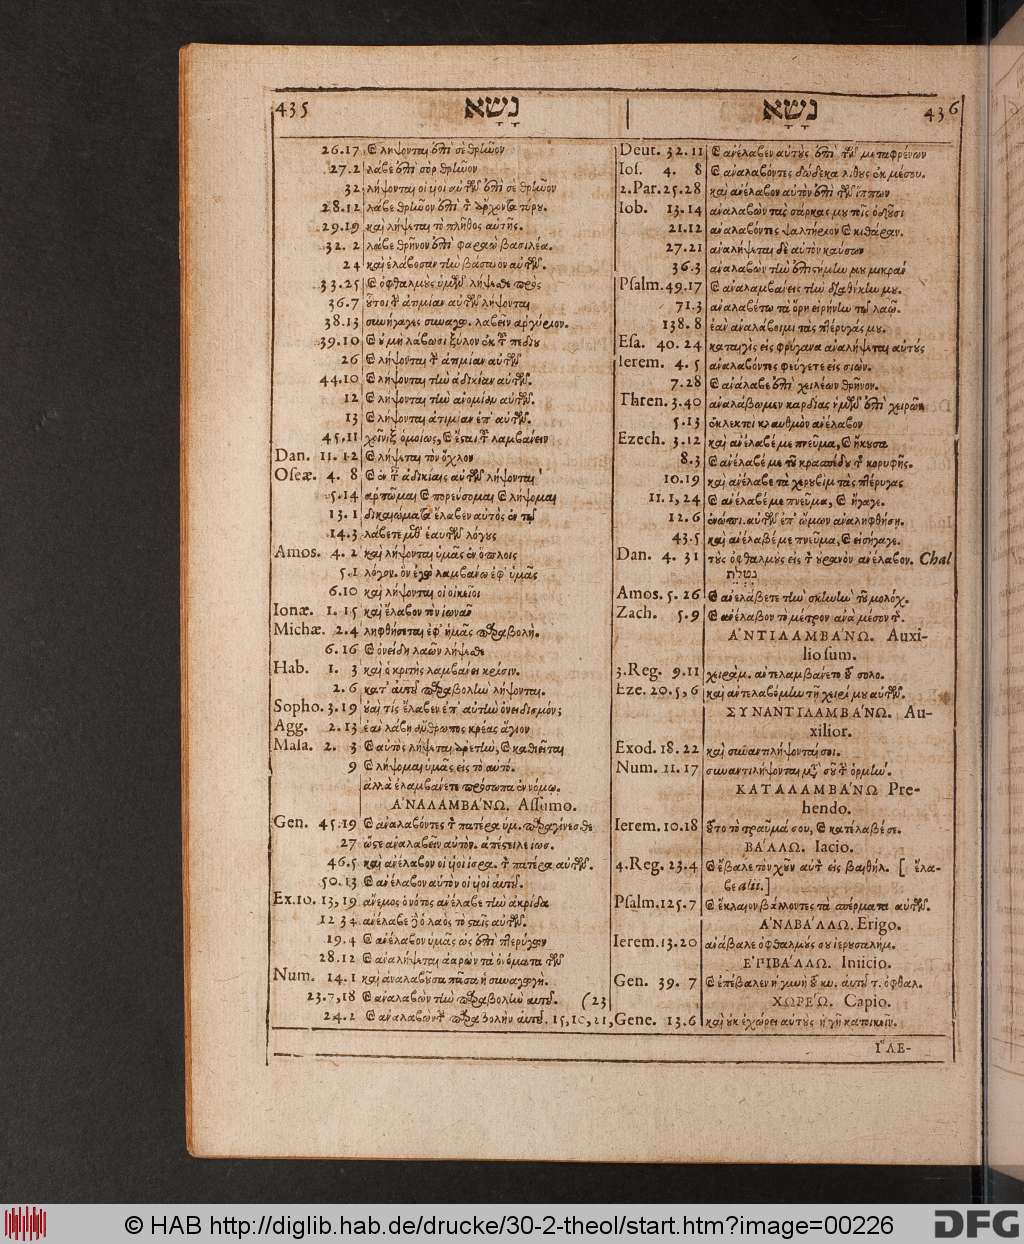 435 נָשָׂא
26.17 καὶ λήψονται ἐπὶ σὲ θρῆνον
27.2 λάβε ἐπὶ σὸρ θρῆνον
32 λήψονται οἱ υἱοὶ αὐτῶν ἐπὶ σε θρῆνον
28.12 λάβε θρῆνον ἐπὶ τὸν ἄρχοντα τύρου.
29.19 καὶ λήψεται τὸ πλῆθος αὐτῆς.
32. 2 λάβε θρῆνον ἐπὶ φαραὼ βασιλέα.
24 καὶ ἐλάβοσαν τὴν βάσανον αὐτῶν.
33.25 καὶ ὀφθαλμοὺς ὑμῶν λήψεσθε πρὸς
36.7 οὗτοι τὴν ἀτιμίαν αὐτῶν λήψονται
38.13 συνήγαγες συναγωγ. λαβεῖν ἀργύριον.
39.10 καὶ οὐ μὴ λάβωσι ξύλον ἐκ τοῦ πεδίου
26 καὶ λήψονται τὴν ἀτιμίαν αὐτῶν
44.10 καὶ λήψονται τὴν ἀδικίαν αὐτῶν.
12 καὶ λήψονται τὴν ἀνομίαν αὐτῶν.
13 καὶ λήψονται ἀτιμίαν ἐπ' αὐτῶν.
45.11 χοῖνιξ ὁμοίως, καὶ ἔσται τοῦ λαμβάνειν
Dan. 11. 12 καὶ λήψεται τὸν ὄχλον
Oseæ. 4. 8 καὶ ἐν ταῖς ἀδικίαις αὐτῶν λήψονται
5.14 ἁρπῶμαι καὶ πορεύσομαι καὶ λήψομαι
13.1 δικαιώματα ἔλαβεν αὐτὸς ἐν τῷ
14.3 λάβετε μεθ' ἑαυτῶν λόγους
Amos. 4. 2 καὶ λήψονται ὑμᾶς ἐν ὅπλοις
5.1 λόγον. ὃν ἐγὼ λαμβάνω ἐφ' ὑμᾶς
6.10 καὶ λήψονται οἱ οἰκεῖοι
Ionæ. 1. 15 καὶ ἔλαβον τὸν ἰωνᾶν
Michæ. 2.4 ληφθήσεται ἐφ' ὑμᾶς παραβολὴ.
6. 16 καὶ ὀνείδη λαῶν λήψεσθε
Hab. 1. 3 καὶ ὁ κριτὴς λαμβάνει κρίσιν.
2. 6 κατ' αὐτοῦ παραβολὴν λήψονται.
Sopho. 3.19 καὶ τίς ἔλαβεν ἐπ' αὐτὴν ὀνειδισμόν;
Agg. 2.13 ἐὰν λάβῃ ἄνθρωπος κρέας ἅγιον
Mala. 2. 3 καὶ αὐτὸς λήψεται ἀρετὴν, καὶ καθιεῖται
9 καὶ λήψομαι ὑμᾶς εἰς τὸ αὐτό.
ἀλλὰ ἐλαμβάνετε πρόσωπα ἐν νόμῳ.
ἈΝΑΛΑΜΒΆΝΩ. Assumo.
Gen. 45.19 καὶ ἀναλαβόντες τὸν πατέρα ὑμ. παραγίνεσθε
27 ὥστε ἀναλαβεῖν αὐτὸν. ἀπέστειλε ἰωσ.
46.5 καὶ ἀνέλαβον οἱ υἱοὶ ἰσρα. τὸν πατέρα αὐτῶν.
50.13 καὶ ἀνέλαβον αὐτὸν οἱ υἱοὶ αὐτοῦ.
Ex.10. 13,19 ἄνεμος ὁ νότος ἀνέλαβε τὴν ἀκρίδα
12 34 ἀνέλαβε δὲ ὁ λαὸς τὸ σταῖς αὐτῶν.
19.4 καὶ ἀνέλαβον ὑμᾶς ὡς ἐπὶ πτερύγων
28.12 καὶ ἀναλήψεται ἀαρὼν τὰ ὀνόματα τῶν
Num. 14.1 καὶ ἀναλαβοῦσα πᾶσα ἡ συναγωγὴ.
23.7,18 καὶ ἀναλαβὼν τὴν παραβολὴν αὐτοῦ. (23
24.2 καὶ ἀναλαβὼν τὴν παραβολὴν αὐτοῦ. 15,10,21,
נָשָׂא 436
Deut. 32.11 καὶ ἀνέλαβεν αὐτοὺς ἐπὶ τῶν μεταφρένων
Ios. 4. 8 καὶ ἀναλαβόντες δώδεκα λίθους ἐκ μέσου.
2.Par.25.28 καὶ ἀνέλαβον αὐτὸν ἐπὶ τῶν ἵππων
Iob. 13.14 ἀναλαβὼν τὰς σάρκας μου τοῖς ὀδοῦσι
21.12 ἀναλαβόντες ψαλτήριον καὶ κιθάραν.
27.21 ἀναλήψεται δὲ αὐτὸν καύσων
36.3 ἀναλαβὼν τὴν ἐπιστήμην μου μακρὰν
Psalm.49.17 καὶ ἀναλαμβάνεις τὴν διαθήκην μου.
71.3 ἀναλαβέτω τὰ ὄρη εἰρήνην τῷ λαῷ.
138.8 ἐὰν ἀναλάβοιμι τὰς πτέρυγας μου.
Esa. 40.24 καταιγὶς εἰς φρύγανα ἀναλήψεται αὐτούς
Ierem. 4. 5 ἀναλαβόντες φεύγετε εἰς σιών.
7.28 καὶ ἀνάλαβε ἐπὶ χειλέων θρῆνον.
Thren. 3.40 ἀναλάβωμεν καρδίας ἡμῶν ἐπὶ χειρῶν
5.13 ἐκλεκτοὶ κλαυθμὸν ἀνέλαβον
Ezech. 3.12 καὶ ἀνέλαβέ με πνεῦμα, καὶ ἤκουσα
8.3 καὶ ἀνέλαβέ με τοῦ κρασπέδου τῆς κορυφῆς.
10.19 καὶ ἀνέλαβε τὰ χερουβὶμ τὰς πτέρυγας
11.1,24 καὶ ἀνέλαβέ με πνεῦμα, καὶ ἤγαγε.
12.6 ἐνώπι. αὐτῶν ἐπ' ὤμων ἀναληφθήσῃ.
43.5 καὶ ἀνέλαβέ με πνεῦμα, καὶ εἰσήγαγε.
Dan. 4. 31 τοὺς ὀφθαλμοὺς εἰς τὸν οὐρανὸν ἀνέλαβον. Chal
נטלת
Amos. 5.26 καὶ ἀνελάβετε τὴν σκηνὴν τοῦ μολόχ.
Zach. 5.9 καὶ ἀνέλαβον τὸ μέτρον ἀνὰ μέσον τῆς.
ἈΝΤΙΛΑΜΒΆΝΩ. Auxi-
lio sum.
3.Reg. 9.11 χειρὰμ. ἀντελαμβάνετο τοῦ σολο.
Eze. 20.5,6 καὶ ἀντελαβόμην τῇ χειρί μου αὐτῶν.
ΣΥΝΑΝΤΙΛΑΜΒΆΝΩ. Au-
xilior.
Exod. 18.22 καὶ συναντιλήψονταί σοι.
Num. 11.17 συναντιλήψονται μετὰ σοῦ τὴν ὁρμὴν.
ΚΑΤΑΛΑΜΒΆΝΩ Pre-
hendo.
Ierem. 10.18 τοῦτο τὸ τραῦμά σου, καὶ κατέλαβέ σε.
ΒΆΛΛΩ. Iacio.
4.Reg. 23.4 καὶ ἔβαλε τὸν χοῦν αὐτῶν εἰς βαιθήλ. [ ἔλα-
βε alii.]
Psalm.125.7 καὶ ἔκλαιον βάλλοντες τὰ σπέρματα αὐτῶν.
ἈΝΑΒΆΛΛΩ. Erigo.
Ierem.13.20 ἀνάβαλε ὀφθαλμούς σου ἱερουσαλήμ.
ἘΠΙΒΆΛΛΩ. Iniicio.
Gen. 39. 7 καὶ ἐπέβαλεν ἡ γυνὴ τοῦ κυ. αὐτοῦ τ. ὀφθαλ.
ΧΩΡΈΩ. Capio.
Gene. 13.6 καὶ οὐκ ἐχώρει αὐτοὺς ἡ γῆ κατοικεῖν.
ἹΛΕ-
© HAB http://diglib.hab.de/drucke/30-2-theol/start.htm?image=00226
DFG